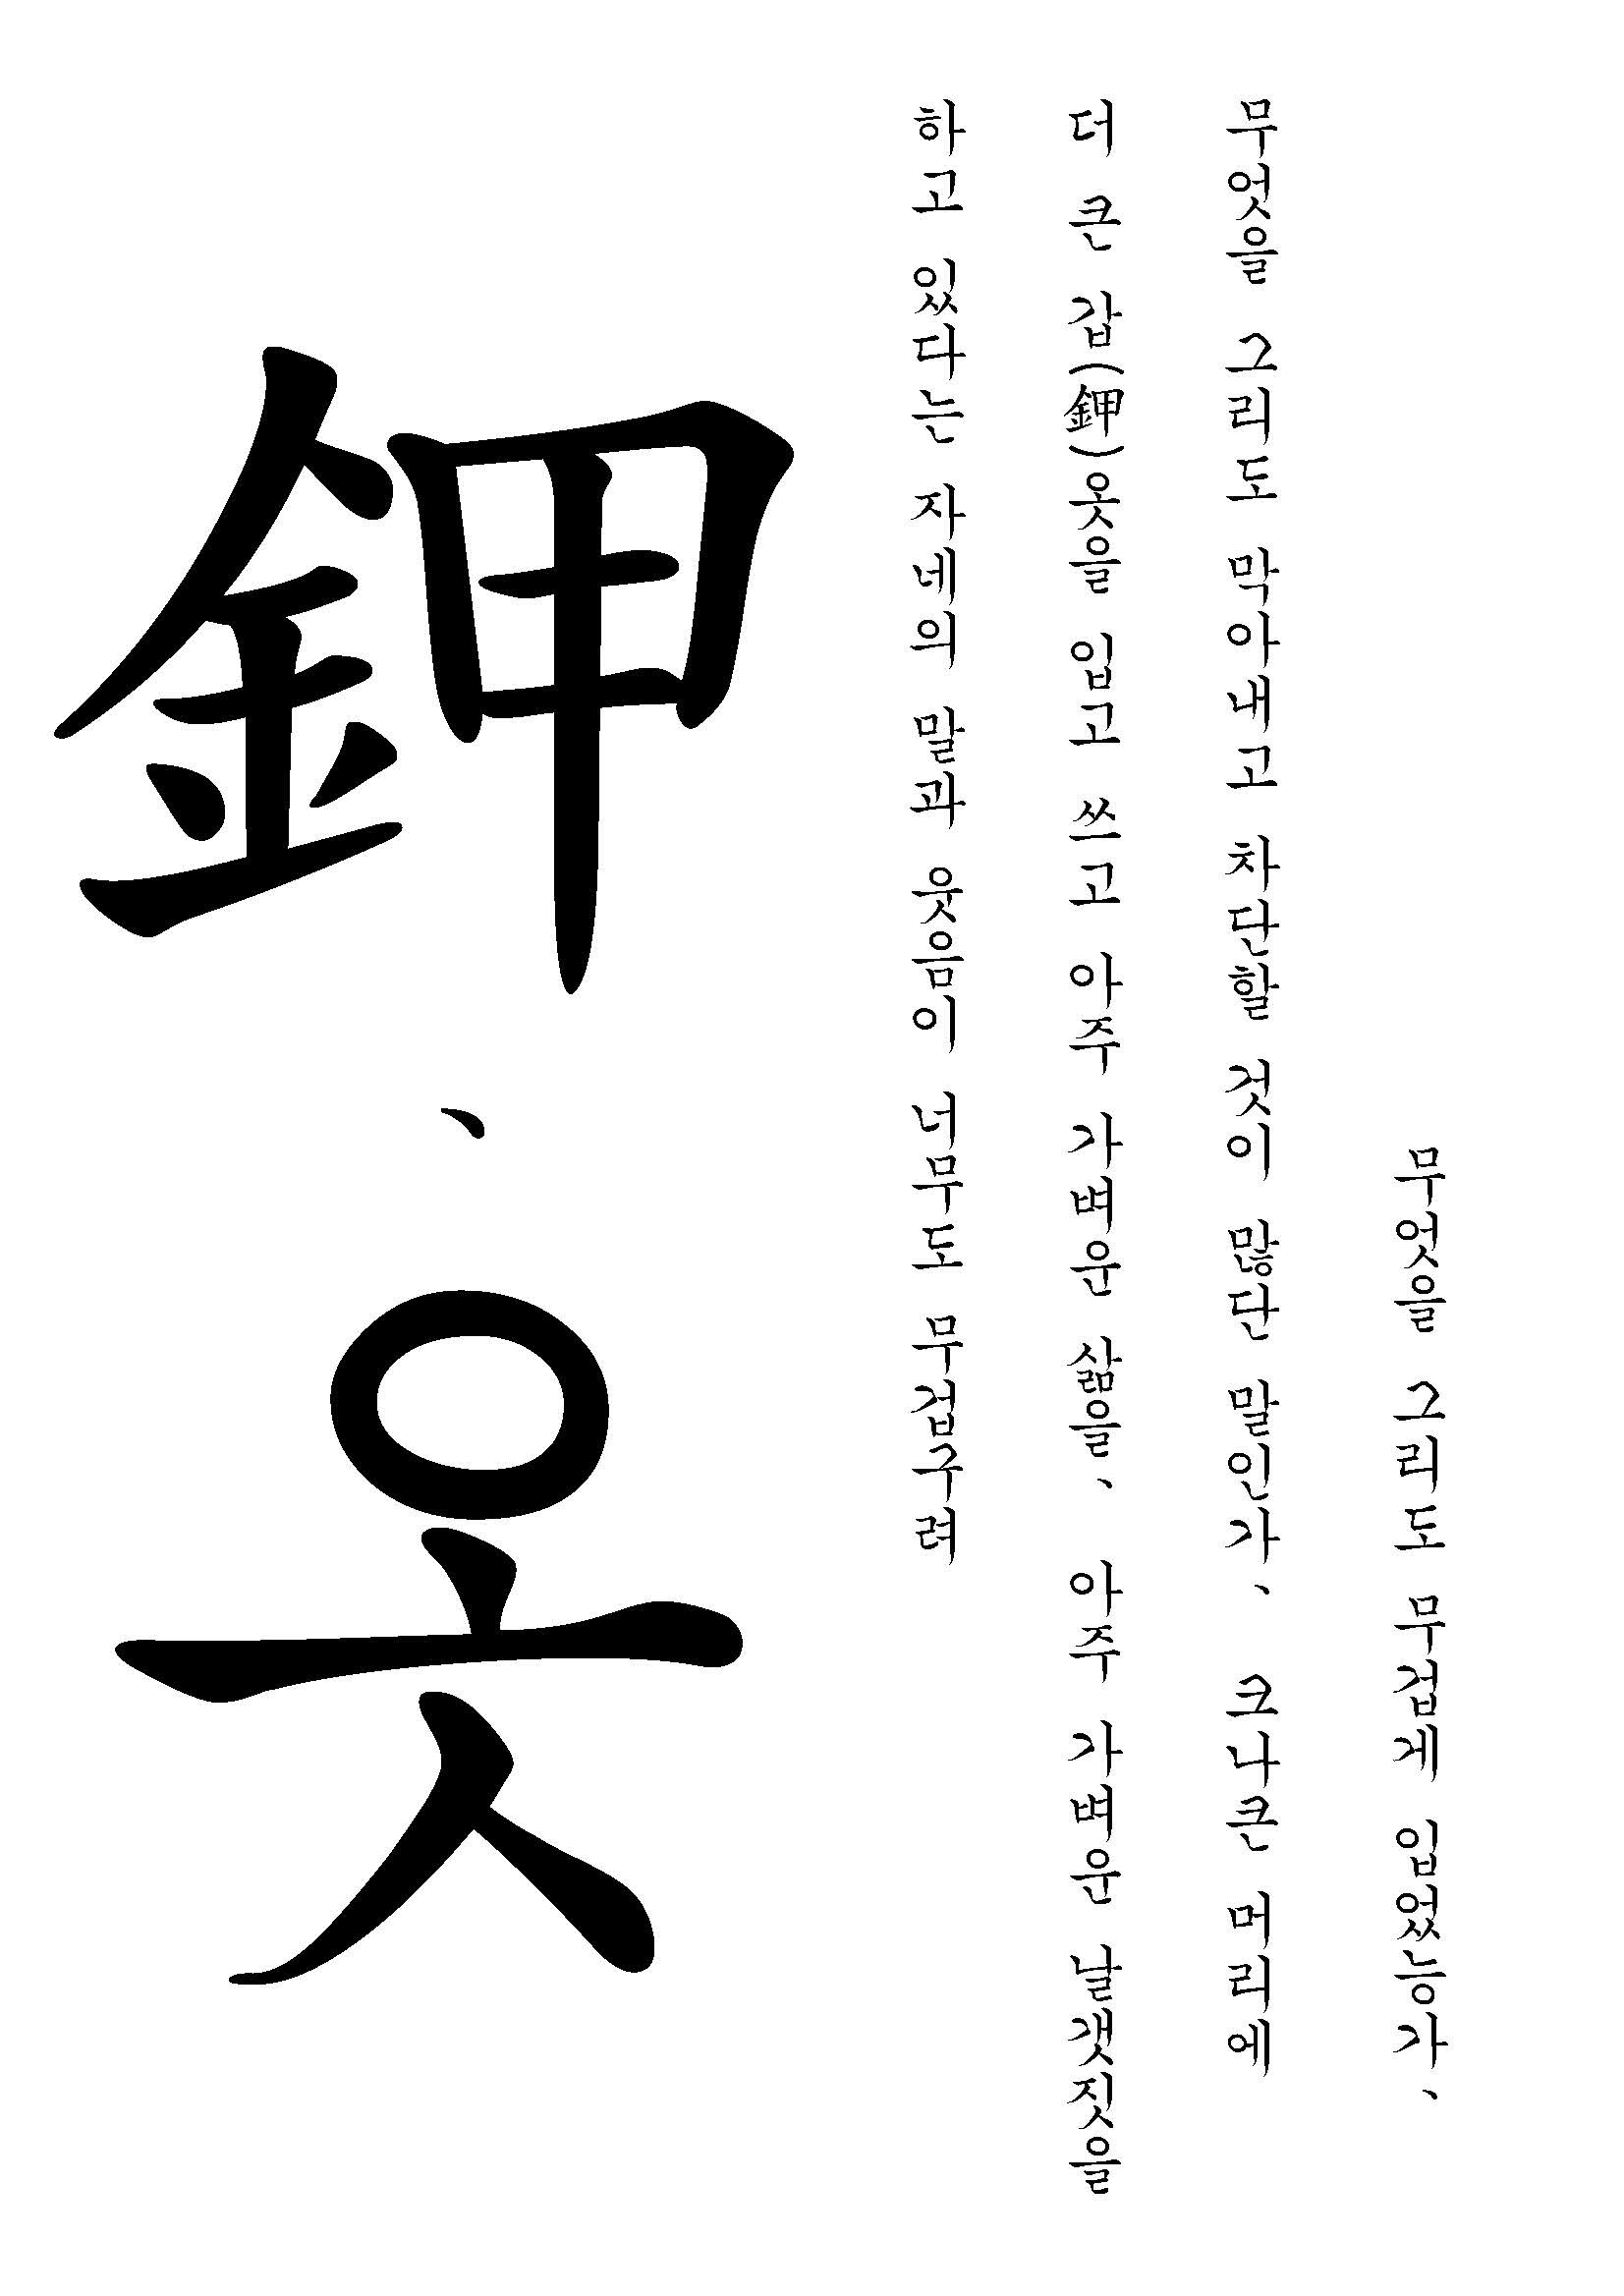 무엇을 그리도 무겁게 입었능가、
무엇을 그리도 막아내고 차단할 것이 많단 말인가、 크나큰 머리에
더 큰 갑(鉀)옷을 입고 쓰고 아주 가벼운 삶을、 아주 가벼운 날갯짓을
하고 있다는 자네의 말과 웃음이 너무도 무겁구려
鉀、옷